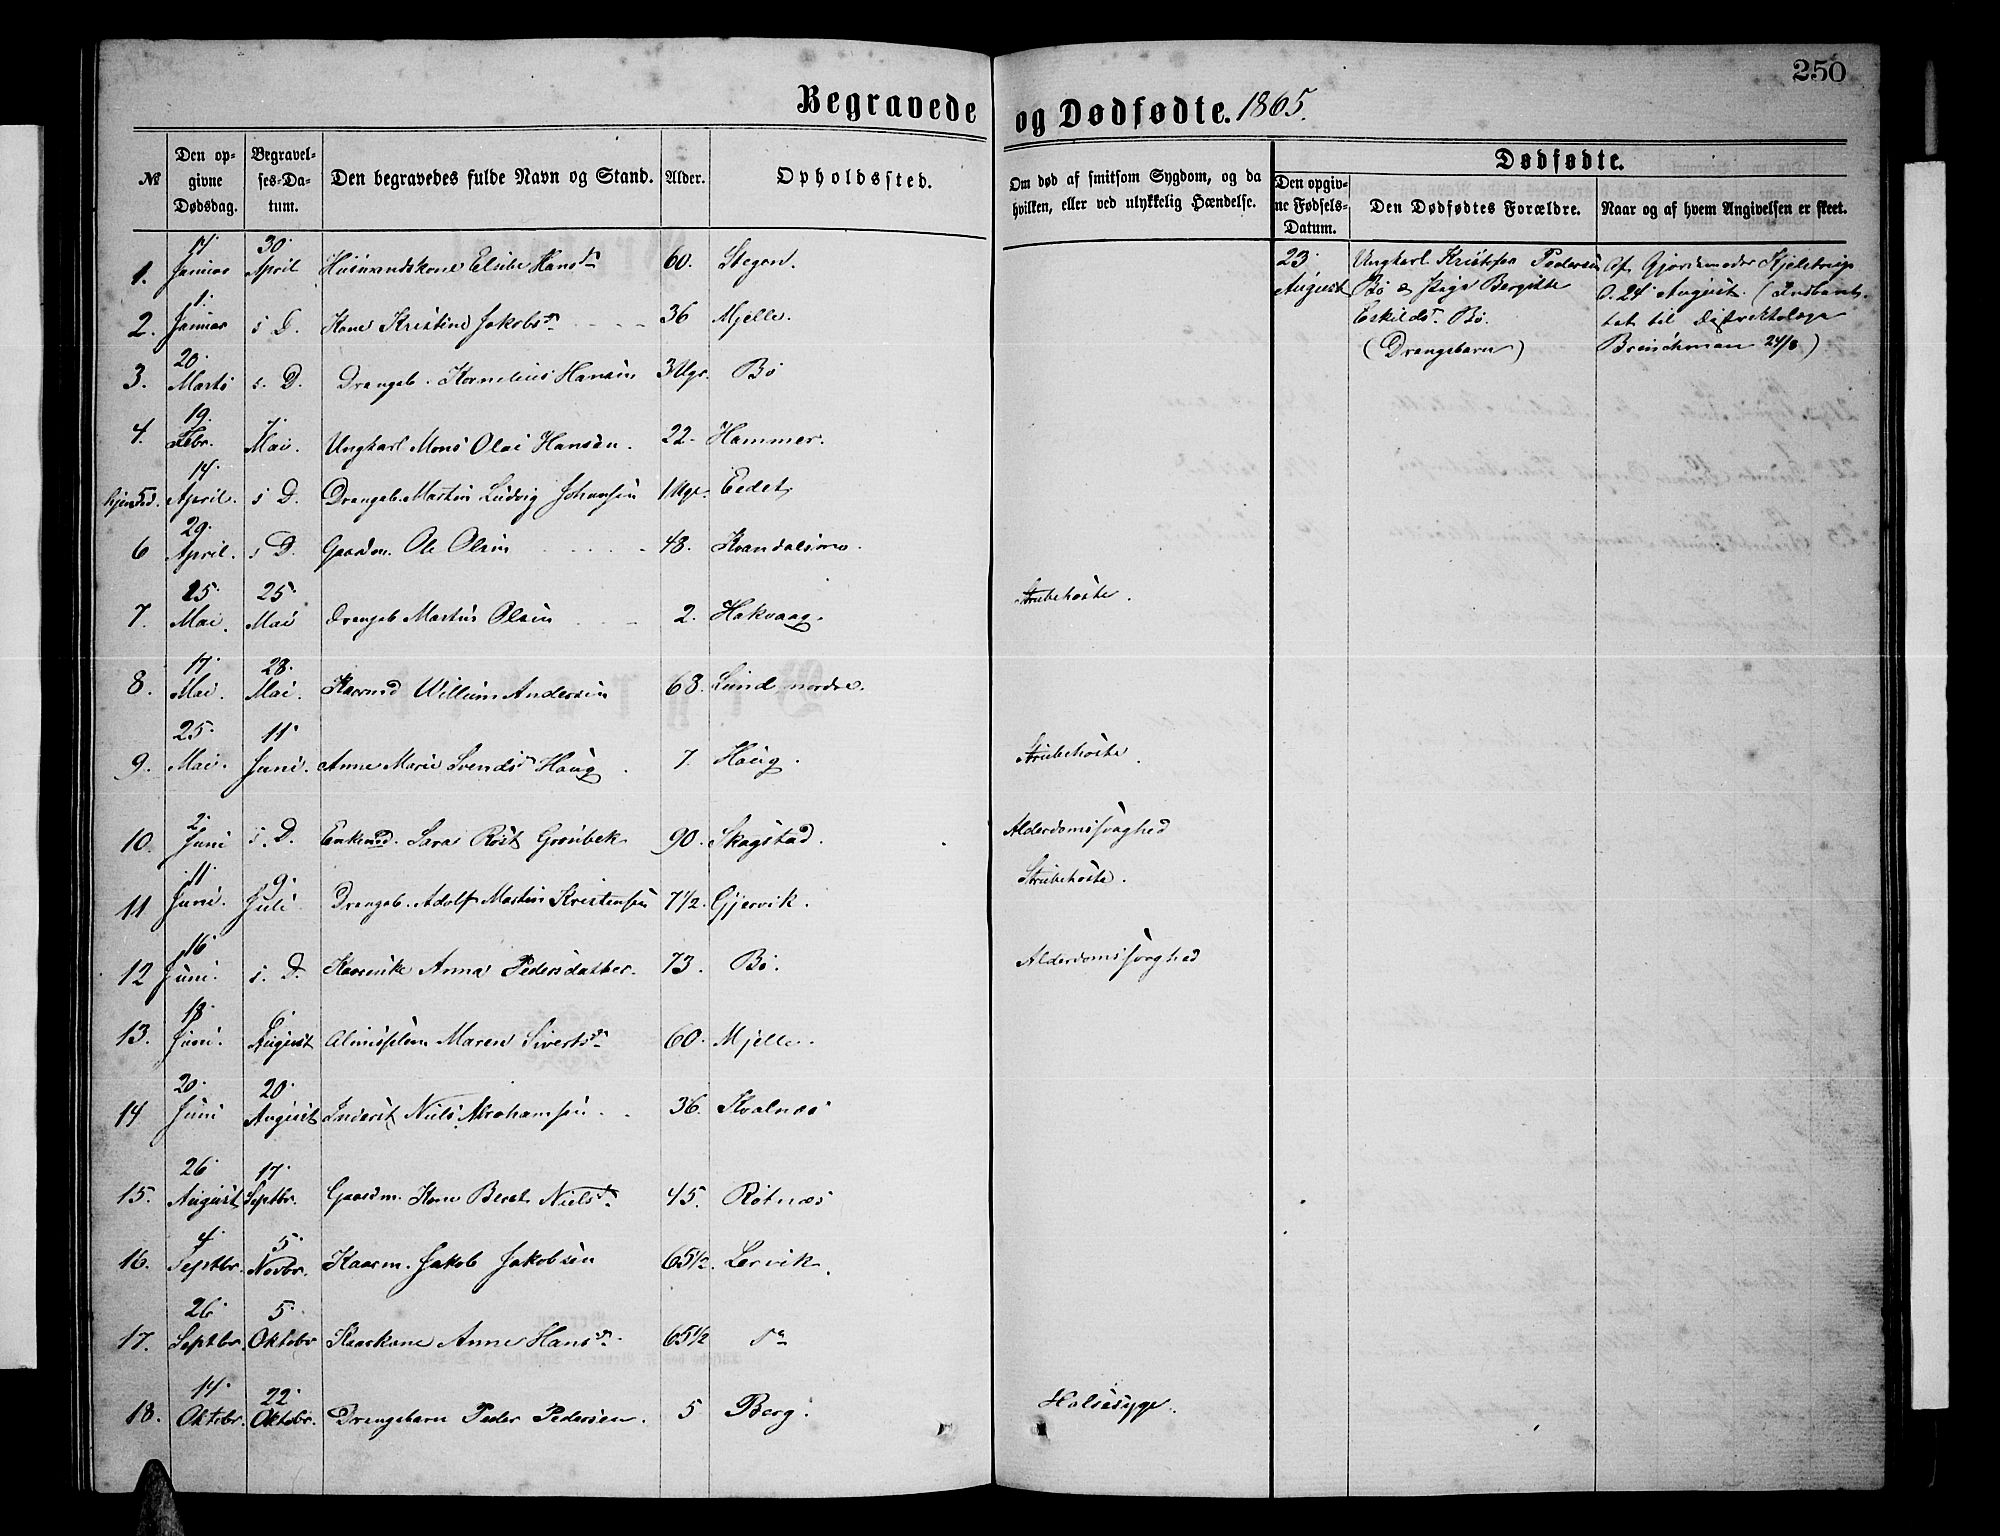 250
Begravede og Dødfødte. 1865.
№ Den opgivne Dødsdag. Begravelses-Datum. Den begravedes fulde Navn og Stand. Alder. Opholdssted. Om død af smitsom Sygdom, og da hvilken, eller ved ulykkelig Hændelse.
Dødfødte.
Den opgivne Fødsels-Datum. Den Dødfødtes Forældre. Naar og af hvem Angivelsen er skeet.
1. 17 Januar 30 April Husmandskone Hansdr 60. Stegen.
2. 1 Januar s. D. Kone Kristine Jakobsdr 36 Mjelle.
3. 20 Marts s. D. Drengeb. Kornelius Hansen 3 Ugr. Bö
4. 19 Febr. 7 Mai. Ungkarl Mons Olai Hansen. 22. Hammer.
hjemdød. 5. 14 April. s. D. Drengeb. Martin Ludvig Johansen 1 Uge. Eedet.
6 29 April. s. D. Gaardm. Ole Olsen 48. Kvandalsmo.
7. 15 Mai. 25 Mai Drengeb. Martin Olsen 2. Hakvaag. Strubehoste.
8. 17 Mai. 28 Mai. Kaarmd Willum Andersen 68. Lund nordre.
9. 25 Mai. 11 Juni. Anne Marie Svendsdr Haug. 7. Haug. Strubehoste.
10. 2 Juni s. D. Enkemd. Sara Röst Grönbek 90. Skogstad. Alderdomssvaghed
11 11 Juni. 9 Juli Drengeb. Adolf Martin Kristensen 7 1/2. Gjervik. Strubehoste.
12 16 Juni. s. D. Kaarenke Anna Pedersdatter. 73. Bö. Alderdomssvaghed
13. 18 Juni. 6 August Almisslem Maren Sivertsdr 60. Mjelle.
14 20 Juni 20 August Inderst Niels Abrahamsen. 36. Kvalnæs
15. 26 August 17 Septbr. Gaardm. Kone Beret Nielsdr 45. Rötnæs
16. 4 Septbr. 5 Novbr. Kaarm. Jakob Jakobsen 65 1/2. Lervik.
17. 26 Septbr. 5 Oktobr Kaarkone Anne Hansdr. 65 1/2
18. 14 Oktobr. 22 Oktobr. Drengebarn Peder Pedersen. 5 Berg. Halssyge.
23 August
Ungkarl Kristofer Pedersen
Bö & Pige Bergitte
Eskildsdr Bö.
(Drengebarn)
Af Gjordemoder Kjelstrup
d. 24 August. (Indberet-
tet til Distriktslæge
24/8)